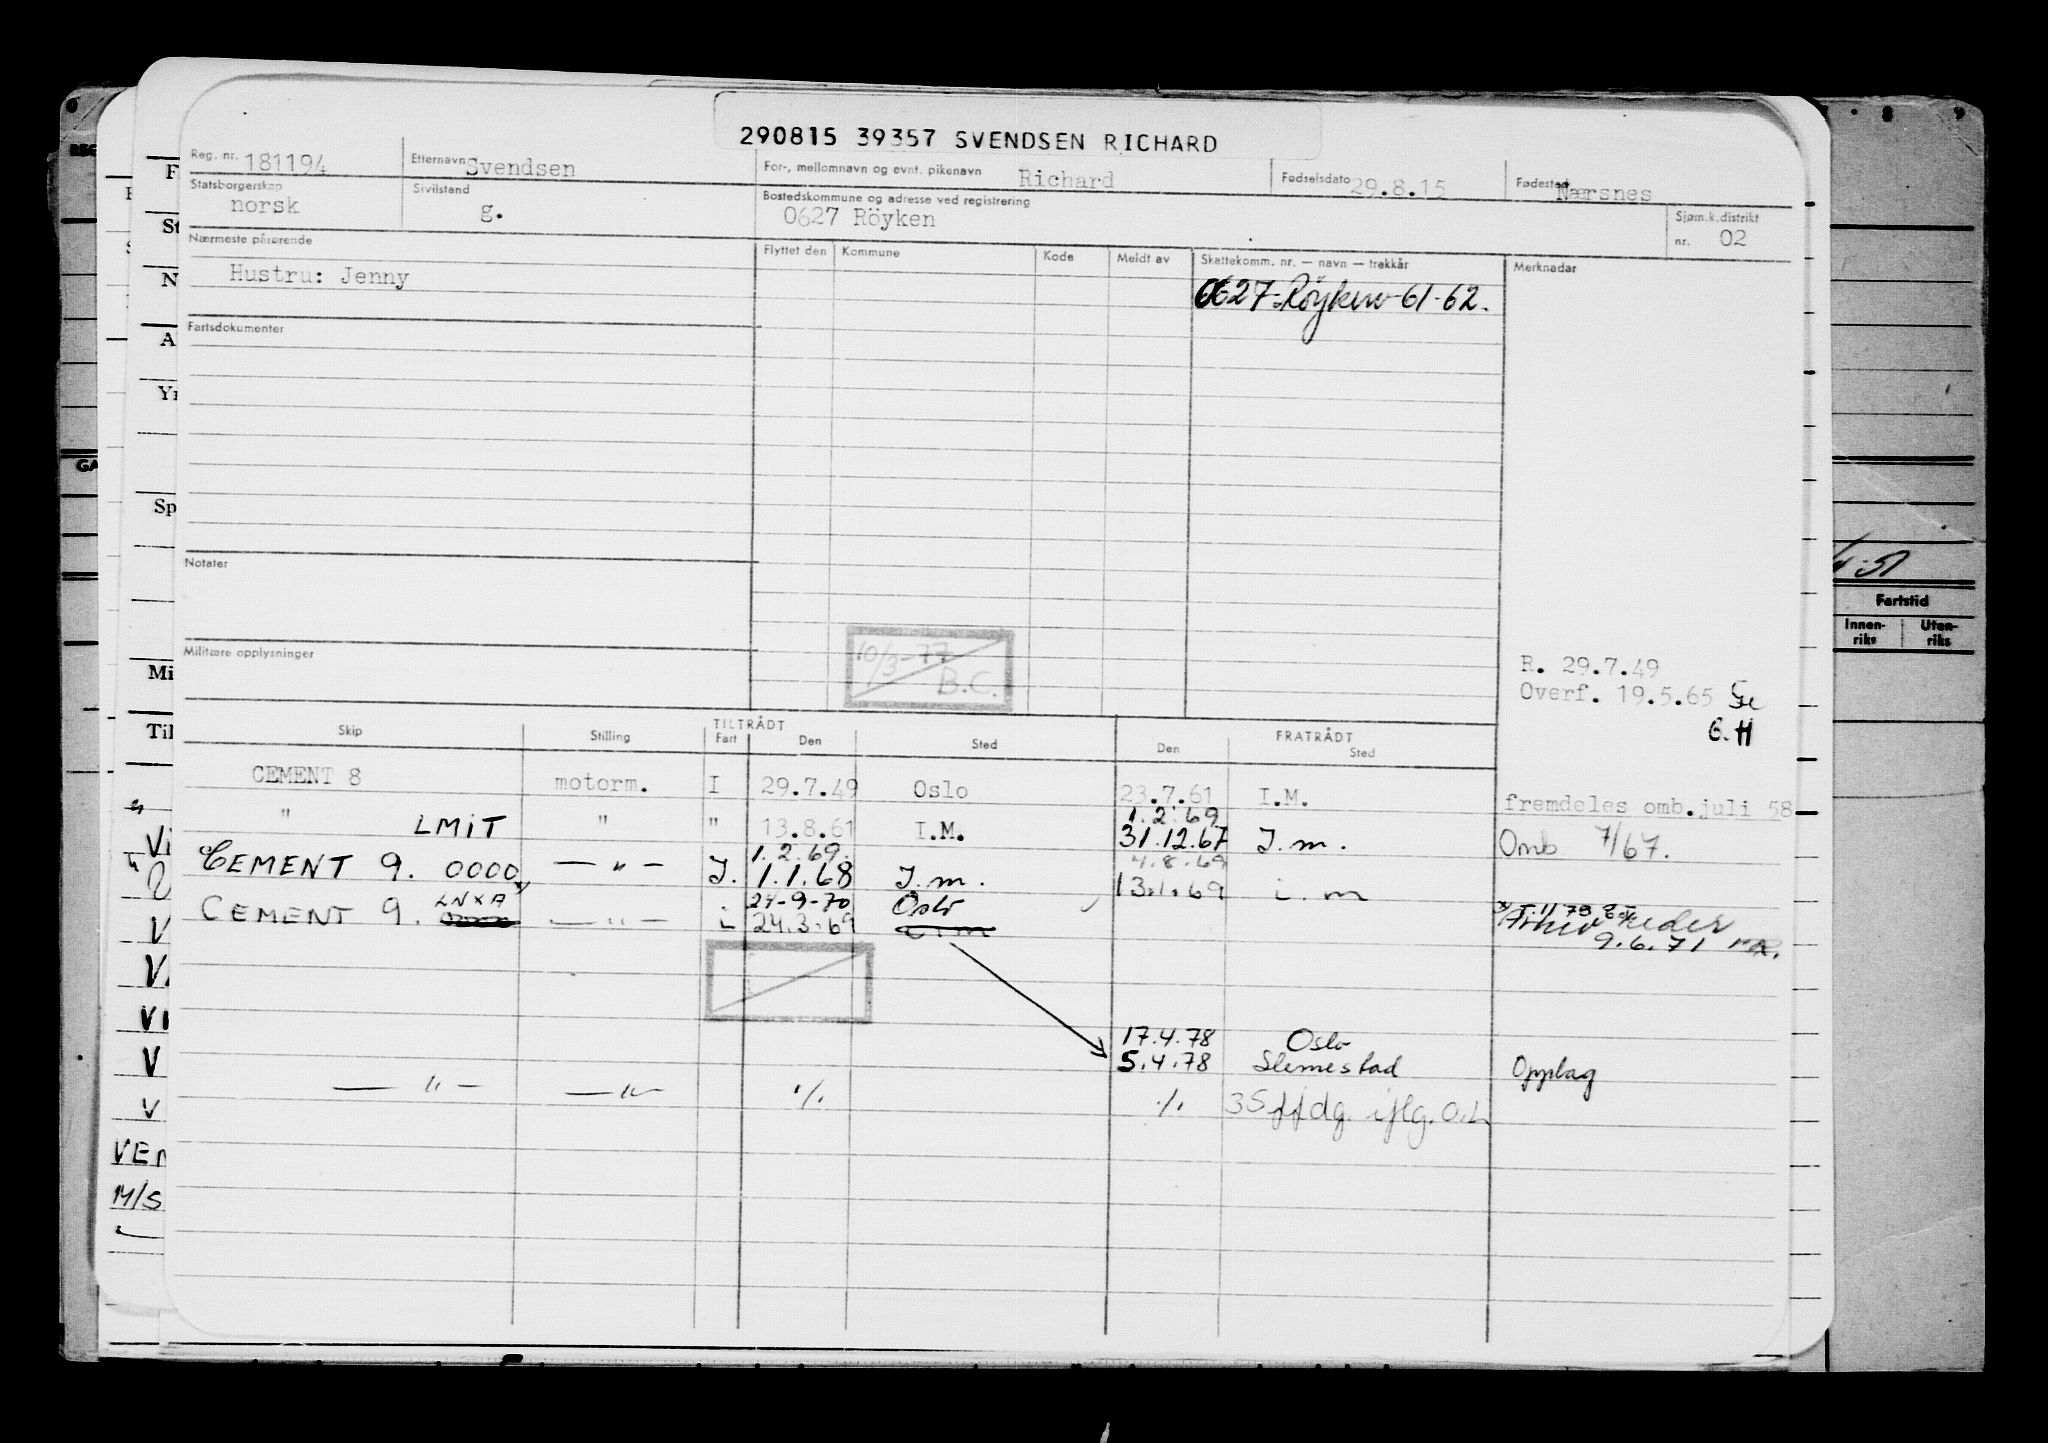 290815 39357 SVENDSEN RICHARD
Reg. nr. 181194 Etternavn Svendsen For-, mellomnavn og evnt. pikenavn Richard Fødselsdato 29.8.15 Fødested Nærsnes
Statsborgerskap norsk Sivilstand g. Bostedskommune og adresse ved registrering 0627 Röyken Sjøm.k.distrikt nr. 02
Nærmeste pårørende Flyttet den Kommune Kode Meldt av Skattekomm. nr. — navn — trekkår Merknader
Hustru: Jenny 0627 Røyken 61-62.
Fartsdokumenter
Notater
Militære opplysninger
10/3-77
B.C.
R. 29.7.49
Overf. 19.5.65
E.H
Skip Stilling TILTRÅDT Fart Den Sted FRATRÅDT Den Sted
CEMENT 8 motorm. I 29.7.49 Oslo 23.7.61 I.M. fremdeles omb.juli 58
1.2.69
" LMIT " " 13.8.61 I.M. 31.12.67 I.m. Omb 7/67.
1.2.69. 4.8.69
CEMENT 9. 0000 — " — I. 1.1.68 I.m. 13.1.69 i.m
LNXA 24-9-70 Oslo
CEMENT 9. — " — i 24.3.69
9.6.71
17.4.78 Oslo
5.4.78 Slemestad Opplag
— " — — " — ·/. ·/. 35 ffdg. iflg. O.L
Fartstid
Innen-
riks
Uten-
riks
VEN
M/S